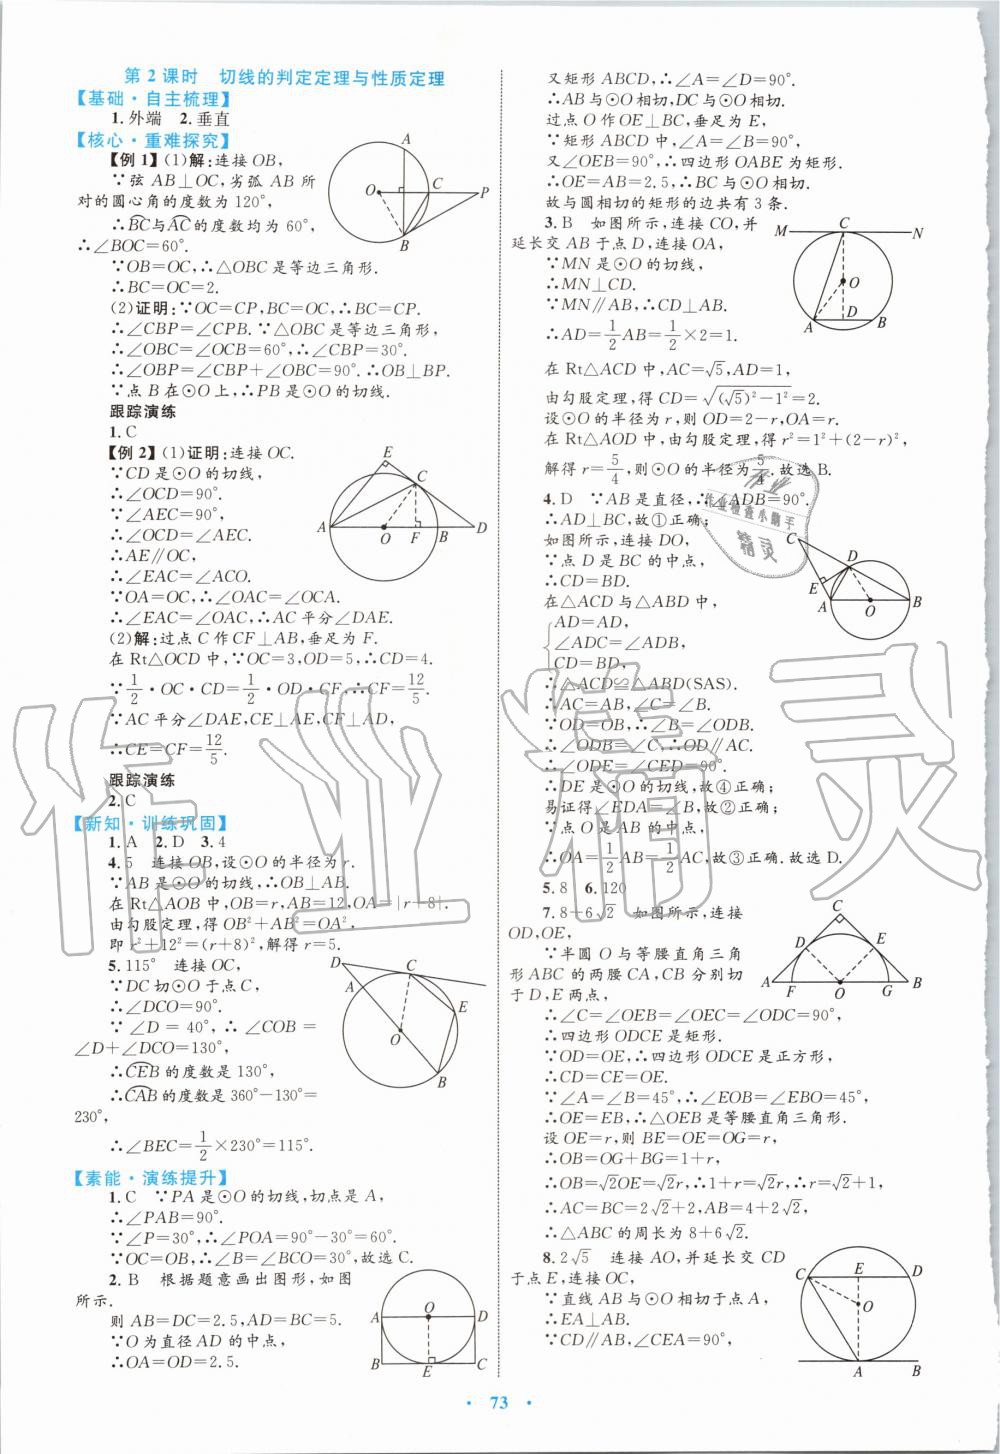 第2课时 切线的判定定理与性质定理
【基础·自主梳理】
1.外端 2.垂直
【核心·重难探究】
【例1】(1)解:连接OB,
∵弦AB⊥OC,劣弧AB所
对的圆心角的度数为120°,
∴BC与AC的度数均为60°,
∴∠BOC=60°.
∵OB=OC,∴△OBC是等边三角形.
∴BC=OC=2.
(2)证明:∵OC=CP,BC=OC,∴BC=CP.
∴∠CBP=∠CPB.∵△OBC是等边三角形,
∴∠OBC=∠OCB=60°,∴∠CBP=30°.
∴∠OBP=∠CBP+∠OBC=90°.∴OB⊥BP.
∵点B在⊙O上,∴PB是⊙O的切线.
跟踪演练
1.C
【例2】(1)证明:连接OC.
∵CD是⊙O的切线,
∴∠OCD=90°.
∵∠AEC=90°,
∴∠OCD=∠AEC.
∴AE∥OC,
∴∠EAC=∠ACO.
∵OA=OC,∴∠OAC=∠OCA.
∴∠EAC=∠OAC,∴AC平分∠DAE.
(2)解:过点C作CF⊥AB,垂足为F.
在Rt△OCD中,∵OC=3,OD=5,∴CD=4.
∵1/2·OC·CD=1/2·OD·CF,∴CF=12/5.
∵AC平分∠DAE,CE⊥AE,CF⊥AD,
∴CE=CF=12/5.
跟踪演练
2.C
【新知·训练巩固】
1.A 2.D 3.4
4.5 连接OB,设⊙O的半径为r.
∵AB是⊙O的切线,∴OB⊥AB.
在Rt△AOB中,OB=r,AB=12,OA=|r+8|.
由勾股定理,得OB²+AB²=OA²,
即r²+12²=(r+8)²,解得r=5.
5.115° 连接OC,
∵DC切⊙O于点C,
∴∠DCO=90°.
∵∠D=40°,∴∠COB=
∠D+∠DCO=130°,
∴CEB的度数是130°,
∴CAB的度数是360°-130°=
230°,
∴∠BEC=1/2×230°=115°.
【素能·演练提升】
1.C ∵PA是⊙O的切线,切点是A,
∴∠PAB=90°.
∵∠P=30°,∴∠POA=90°-30°=60°.
∵OC=OB,∴∠B=∠BCO=30°,故选C.
2.B 根据题意画出图形,如图
所示.
则AB=DC=2.5,AD=BC=5.
∵O为直径AD的中点,
∴OA=OD=2.5.
又矩形ABCD,∴∠A=∠D=90°.
∴AB与⊙O相切,DC与⊙O相切.
过点O作OE⊥BC,垂足为E,
∵矩形ABCD中,∠A=∠B=90°.
又∠OEB=90°,∴四边形OABE为矩形.
∴OE=AB=2.5,BC与⊙O相切.
故与圆相切的矩形的边共有3条.
3.B 如图所示,连接CO,并
延长交AB于点D,连接OA,
∵MN是⊙O的切线,
∴MN⊥CD.
∵MN∥AB,∴CD⊥AB.
∴AD=1/2AB=1/2×2=1.
在Rt△ACD中,AC=√5,AD=1,
由勾股定理,得CD=√((√5)²-1²)=2.
设⊙O的半径为r,则OD=2-r,OA=r.
在Rt△AOD中,由勾股定理,得r²=1²+(2-r)²,
解得r=5/4,∴⊙O的半径为5/4.故选B.
4.D ∵AB是直径,∴∠ADB=90°.
∴AD⊥BC,故①正确;
如图所示,连接DO,
∵点D是BC的中点,
∴CD=BD.
在△ACD与△ABD中,
AD=AD,
∠ADC=∠ADB,
CD=BD,
∴△ACD≌△ABD(SAS).
∴AC=AB,∠C=∠B.
∵OD=OB,∴∠B=∠ODB.
∴∠ODB=∠C,∴OD∥AC.
∴∠ODE=∠CED=90°.
∴DE是⊙O的切线,故④正确;
易证得∠EDA=∠B,故②正确;
∵点O是AB的中点,
∴OA=1/2AB=1/2AC,故③正确.故选D.
5.8 6.120
7.8+6√2 如图所示,连接
OD,OE,
∵半圆O与等腰直角三角
形ABC的两腰CA,CB分别切
于D,E两点,
∴∠C=∠OEB=∠OEC=∠ODC=90°,
∴四边形ODCE是矩形.
∵OD=OE,∴四边形ODCE是正方形,
∴CD=CE=OE.
∵∠A=∠B=45°,∴∠EOB=∠EBO=45°,
∴OE=EB,∴△OEB是等腰直角三角形.
设OE=r,则BE=OE=OG=r,
∴OB=OG+BG=1+r,
∴OB=√2OE=√2r,∴1+r=√2r,∴r=√2+1,
∴AC=BC=2r=2√2+2,AB=4+2√2,
∴△ABC的周长为8+6√2.
8.2√5 连接AO,并延长交CD
于点E,连接OC,
∵直线AB与⊙O相切于点A,
∴EA⊥AB.
∵CD∥AB,∠CEA=90°,
· 73 ·